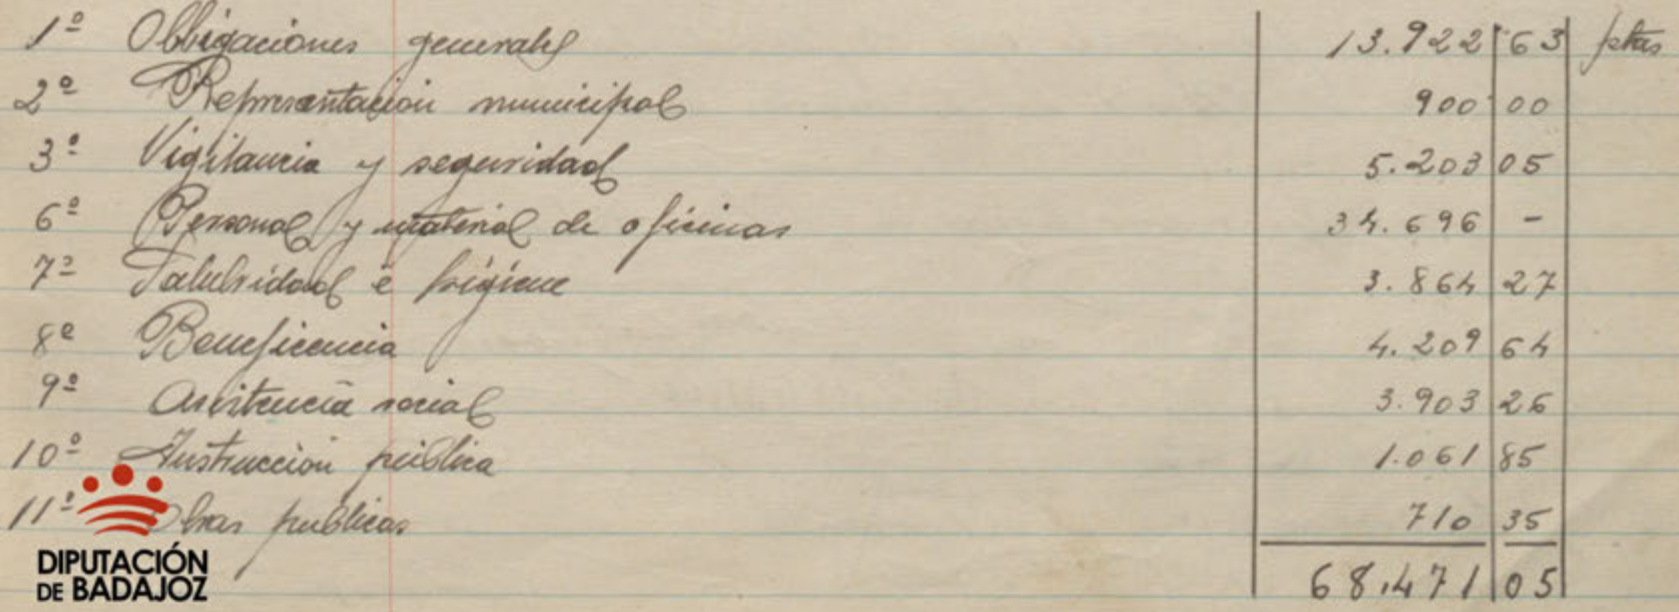 1º Obligaciones generales 13.922 63 ptas
2º Representación municipal 900 00
3º Vigilancia y seguridad 5.203 05
6º Personal y material de oficinas 34.696 -
7º Salubridad é higiene 3.864 27
8º Beneficencia 4.209 64
9º Asistencia social 3.903 26
10º Instrucción pública 1.061 85
11º Obras publicas 710 35
68.471 05
DIPUTACIÓN
DE BADAJOZ